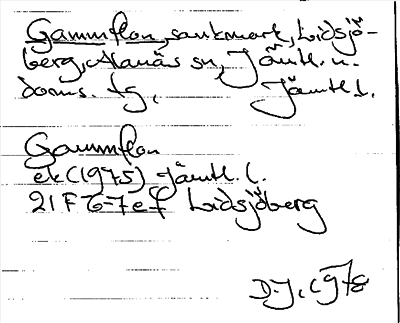 Gammflon, sankmark, Lidsjö-
berg, Alanäs sn, Jämtl. n.
doms. tg, Jämtl. l.
Gammflon
ek (1975) Jämtl. l.
21F 6-7 e-f Lidsjöberg
D.J. 1978